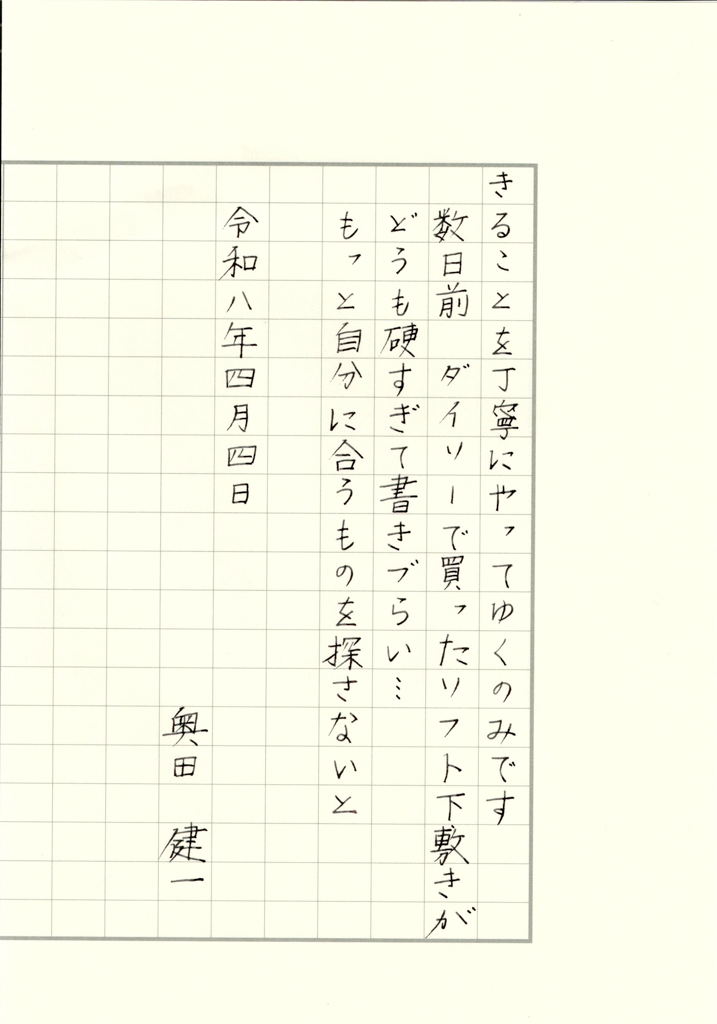 きることを丁寧にやってゆくのみです
数日前　ダイソーで買ったソフト下敷きが
どうも硬すぎて書きづらい…
もっと自分に合うものを探さないと
令和八年四月四日
奥田　健一